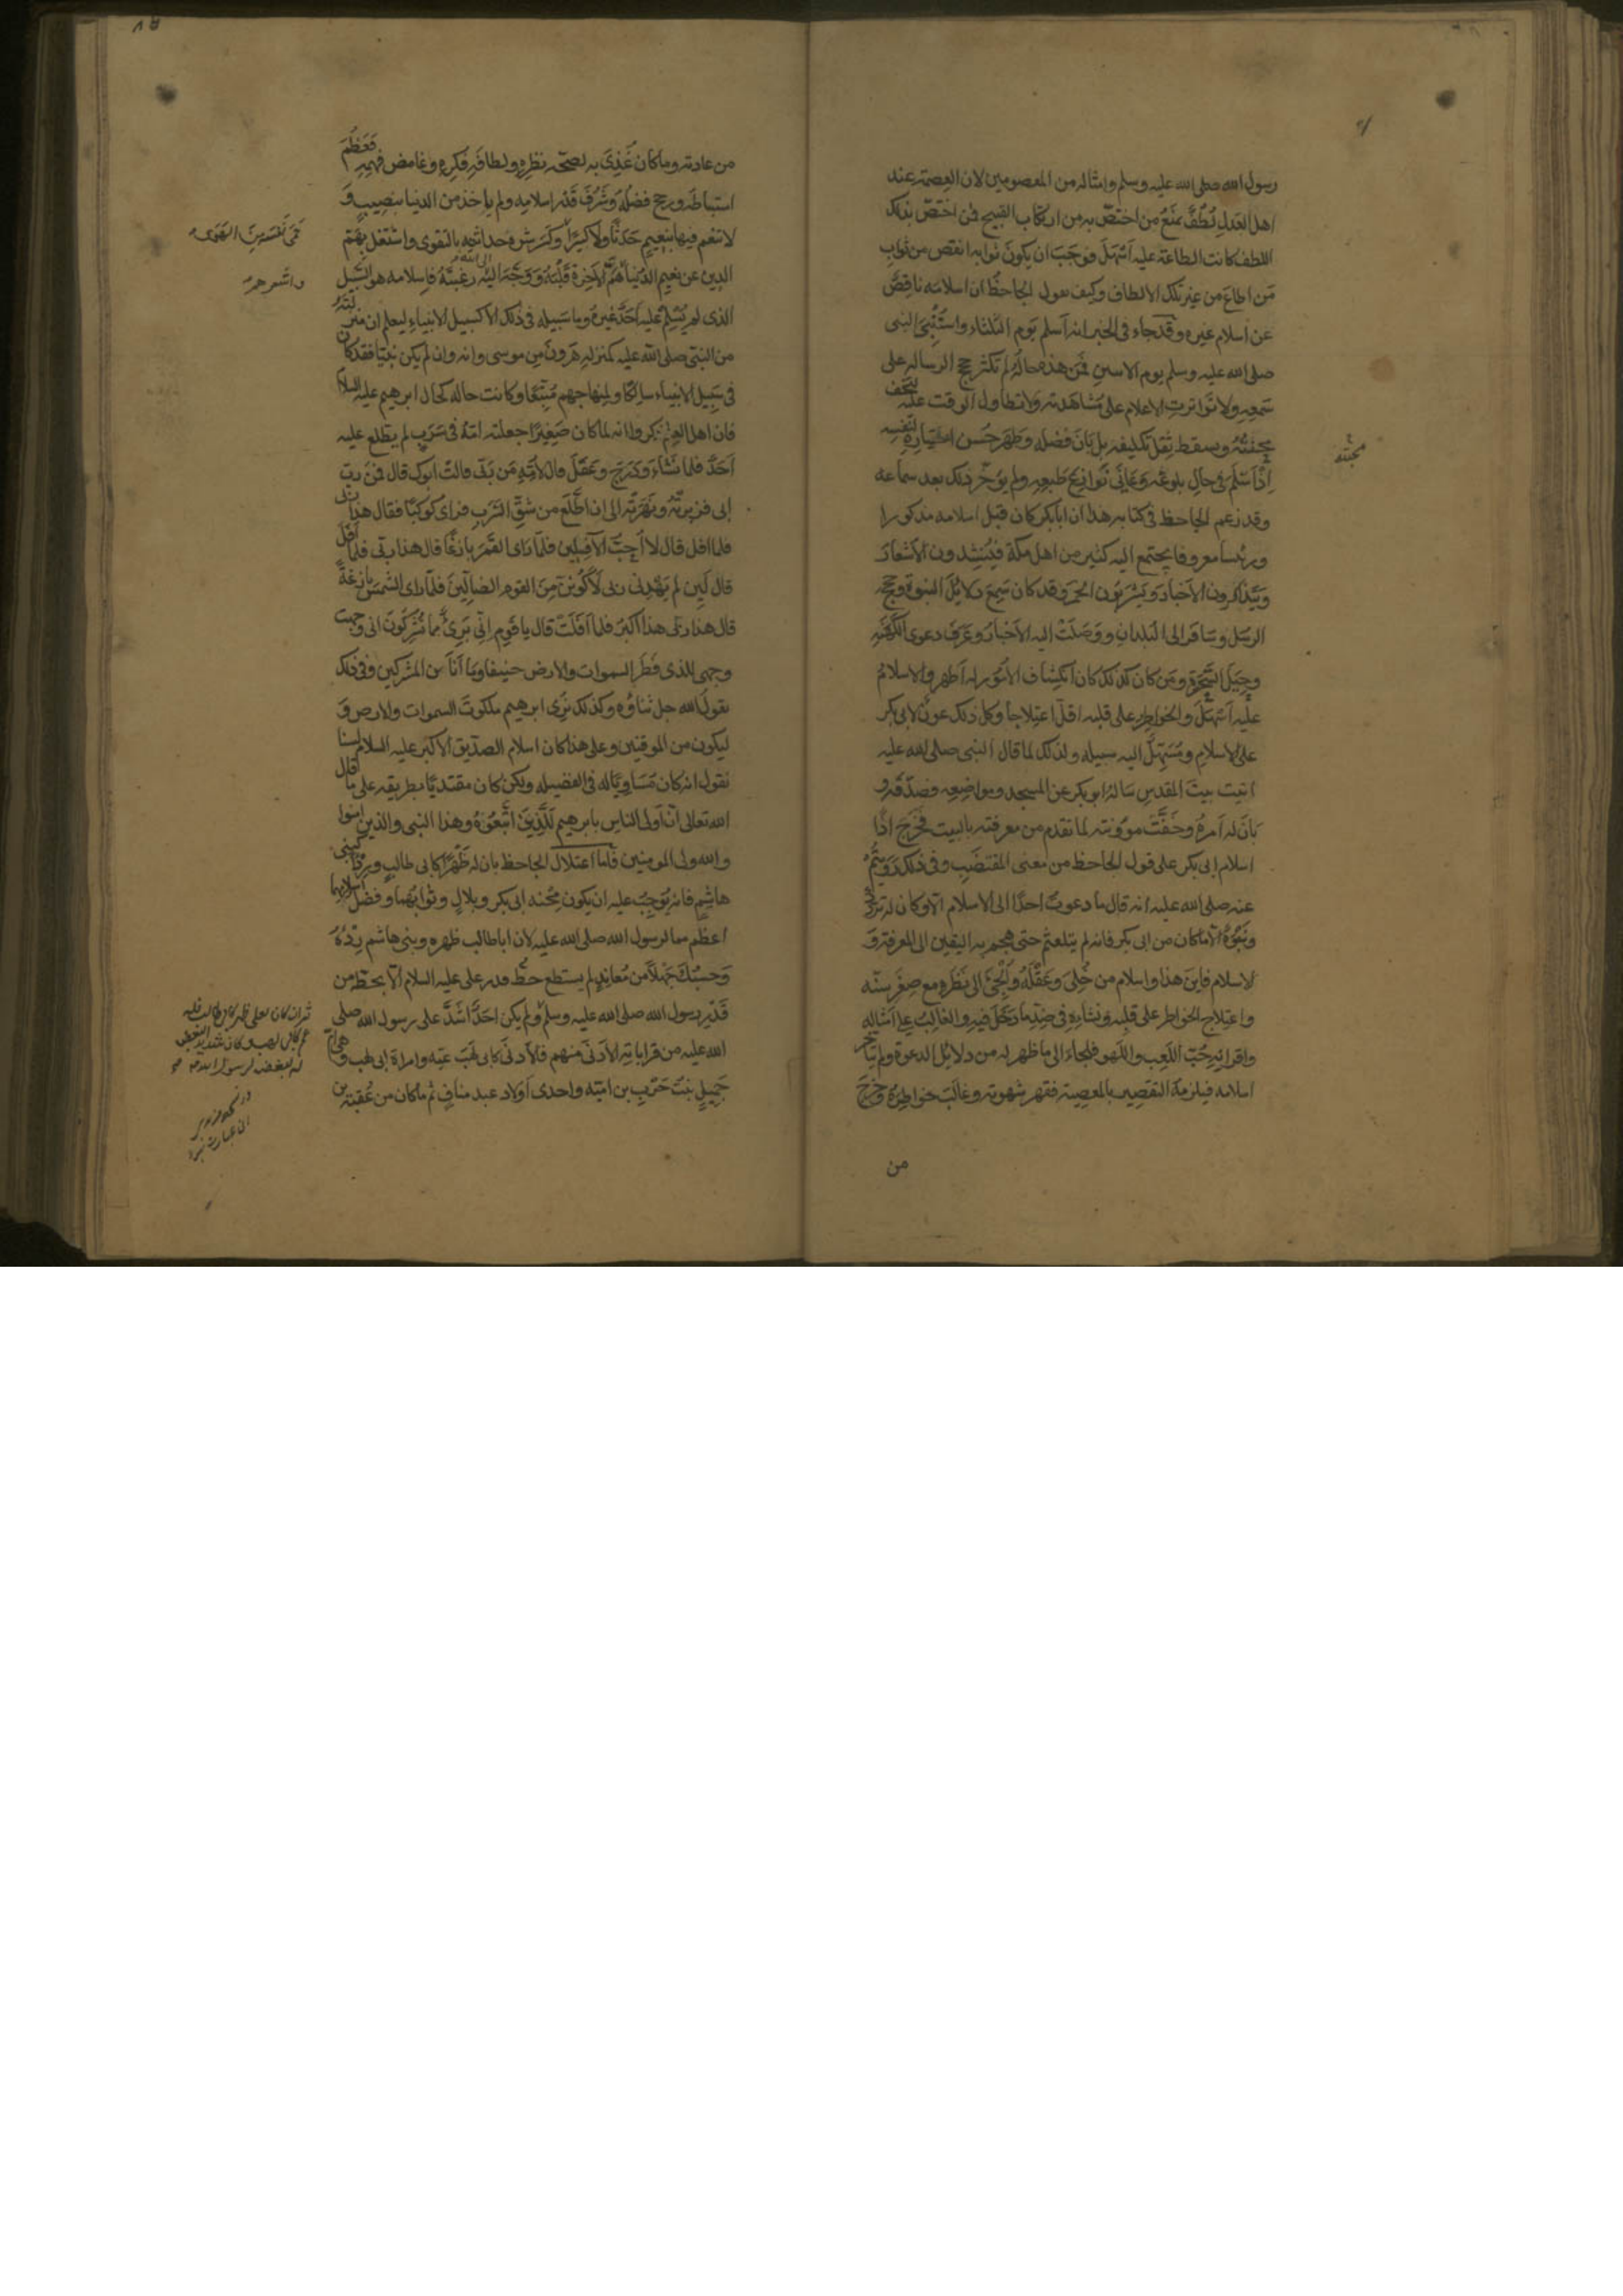 رسول الله صلى الله عليه وسلم وامثاله من المعصومين لان العصمة عند
اهل العدل لطف يمنع من اختص به من ارتكاب القبيح فمن اختص بذلك
اللطف كانت الطاعة عليه اسهل فوجب ان يكون ثوابه انقص من ثواب
من اطاع من غير تلك الالطاف وكيف يقول الجاحظ ان اسلامه ناقص
عن اسلام غيره وقد جاء في الخبر انه اسلم يوم الثلثاء واستنبئ النبي
صلى الله عليه وسلم يوم الاسين فمن هذه حاله لم تكثر حجج الرسالة على
سمعه ولا تواترت الاعلام على مشاهدته ولا تطاول الوقت عليه لتخف
محنته ويسقط ثقل تكليفه بل بان فضله وظهر حسن اختياره لنفسه
اذ اسلم في حال بلوغه وعانى نوازع طبعه ولم يوخر ذلك بعد سماعه
وقد زعم الجاحظ في كتابه هذا ان ابا بكر كان قبل اسلامه مذكورا
ورئسا معروفا يجتمع اليه كثير من اهل مكة فينشدون الاشعار
ويتذاكرون الاخبار ويشربون الخمر وقد كان سمع دلائل النبوة وحجج
الرسل وسافر الى البلدان ووصلت اليه الاخبار وعرف دعوى الكهنة
وحيل السحرة ومن كان كذلك كان انكشاف الامور له اظهر والاسلام
عليه اسهل والخواطر على قلبه اقل اعتلاجا وكل ذلك عون لابي بكر
على الاسلام ومسهل اليه سبيله ولذلك لما قال النبي صلى الله عليه
اتيت بيت المقدس ساله ابو بكر عن المسجد ومواضعه فصدقه و
بان له امره وخفت موونته لما تقدم من معرفته بالبيت فخرج اذا
اسلام ابي بكر على قول الجاحظ من معنى المقتضب وفي ذلك رويتم
عنه صلى الله عليه انه قال ما دعوت احدا الى الاسلام الا وكان له تردد
ونبوة الا ما كان من ابي بكر فانه لم يتلعثم حتى هجم به اليقين الى المعرفة و
الاسلام فاين هذا واسلام من خلي وعقله والجئ الى نظره مع صغر سنه
واعتلاج الخواطر على قلبه ونشاءته في ضد ما دخل فيه والغالب على امثاله
واقرانه حب اللعب واللهو فلجاء الى ما ظهر له من دلائل الدعوة ولم يتاخر
اسلامه فيلزمه التقصير بالمعصية فقهر شهوته وغالب خواطره وخرج
من
محنته
من عادته وما كان غذي به لصحة نظره ولطافة فكره وغامض فهمه فعظم
استنباطه ورجح فضله وشرف قدر اسلامه ولم ياخذ من الدنيا بنصيب و
لا تنعم فيها بنعيم حدثا ولا كبيرا وكسر شره حداثته بالتقوى واشتغل بهم
الدين عن نعيم الدنيا هم الاخرة قلبه ووجه اليه رغبته فاسلامه هو السبيل
الذي لم يسلم عليه احد غيره وما سبيله في ذلك الا كسبيل الانبياء ليعلم ان منزلته
من النبي صلى الله عليه كمنزلة هرون من موسى وانه وان لم يكن نبيا فقد كان
في سبيل الانبياء سالكا ولمنهاجهم متبعا وكانت حاله كحال ابرهيم عليه السلام
فان اهل العلم ذكروا انه لما كان صغيرا جعلته امه في سرب لم يطلع عليه
احد فلما نشاء ودرج وعقل قال لامه من ربي قالت ابوك قال فمن رب
ابي فزبرته ونهرته الى ان اطلع من شق السرب فراى كوكبا فقال هذا ربي
فلما افل قال لا احب الآفلين فلما راى القمر بازغا قال هذا ربي فلما افل
قال لئن لم يهدني ربي لاكونن من القوم الضالين فلما راى الشمس بازغة
قال هذا ربي هذا اكبر فلما افلت قال يا قوم اني بريء مما تشركون اني وجهت
وجهي للذي فطر السموات والارض حنيفا وما انا من المشركين وفي ذلك
يقول الله جل ثناؤه وكذلك نري ابرهيم ملكوت السموات والارض و
ليكون من الموقنين وعلى هذا كان اسلام الصديق الاكبر عليه السلام لسنا
نقول انه كان مساويا له في الفضيلة ولكن كان مقتديا بطريقه على ما قال
الله تعالى ان اولى الناس بابرهيم للذين اتبعوه وهذا النبي والذين امنوا
والله ولي المومنين فاما اعتلال الجاحظ بان له ظهرا كابي طالب وردءا كبني
هاشم فانه يوجب عليه ان يكون محنة ابي بكر وبلال وثوابهما وفضل اسلامهما
اعظم مما لرسول الله صلى الله عليه لان ابا طالب ظهره وبني هاشم ردءه
وحسبك جهلا من معاند لم يستطع حط قدر علي عليه السلام الا بحطه من
قدر رسول الله صلى الله عليه وسلم ولم يكن احد اشد على رسول الله صلى
الله عليه من قراباته الادنى منهم فالادنى كابي لهب عمه وامراة ابي لهب وهي ام
جميل بنت حرب بن امية واحدى اولاد عبد مناف ثم ما كان من عقبة بن